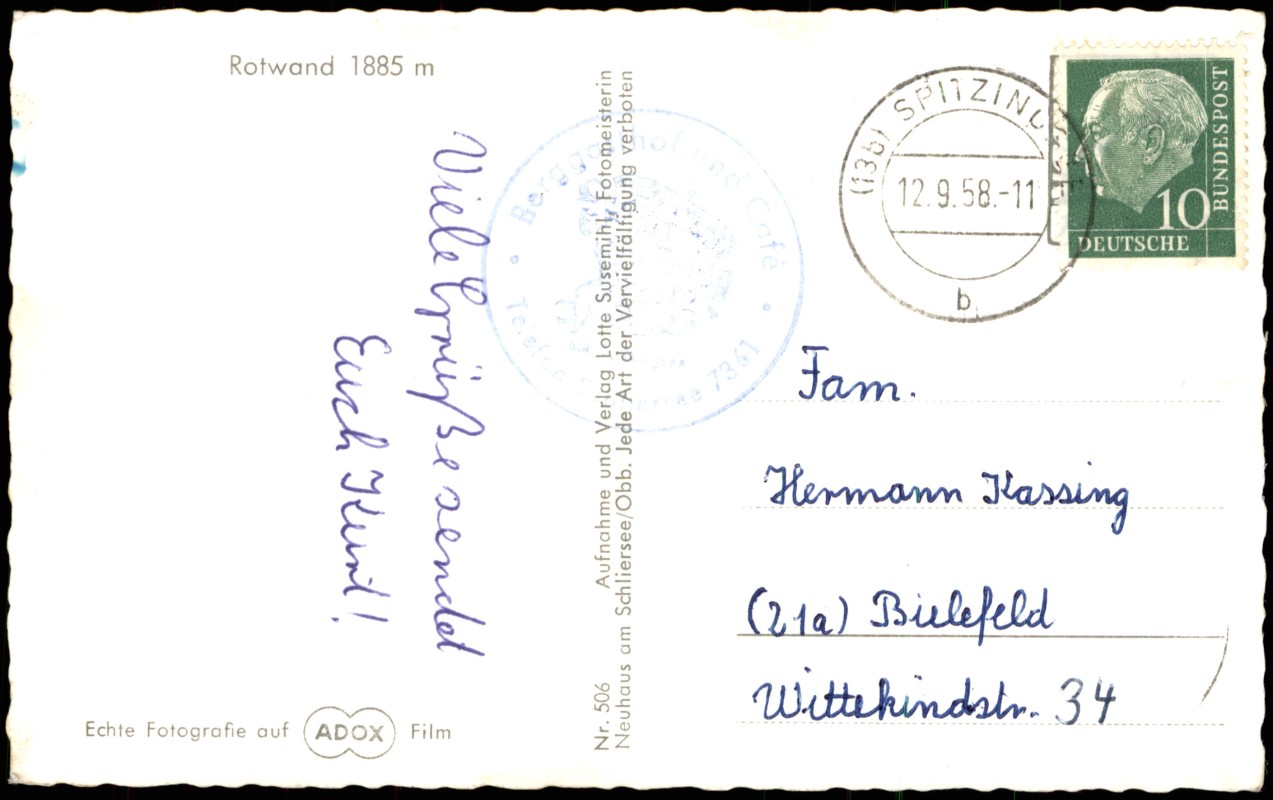 Rotwand 1885 m
Viele Grüße sendet
Euch Kurt!
Echte Fotografie auf ADOX Film
Nr. 506 Aufnahme und Verlag Lotte Susemihl, Fotomeisterin
Neuhaus am Schliersee/Obb. Jede Art der Vervielfältigung verboten
Berggasthof und Café
Telefon Schliersee 7361
(13b) SPITZINGSEE
12.9.58.-11
b
10
DEUTSCHE
BUNDESPOST
Fam.
Hermann Kassing
(21a) Bielefeld
Wittekindstr. 34